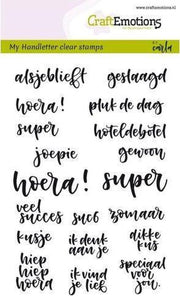 CraftEmotions
www.craftemotions.nl
My Handletter clear stamps
carla
alsjeblieft geslaagd
hoera! pluk de dag
super hoteldebotel
joepie gewoon
hoera! super
veel succes suc6 zomaar
kusje ik denk aan je dikke kus
hiep hiep hoera ik vind je lief speciaal voor jou.